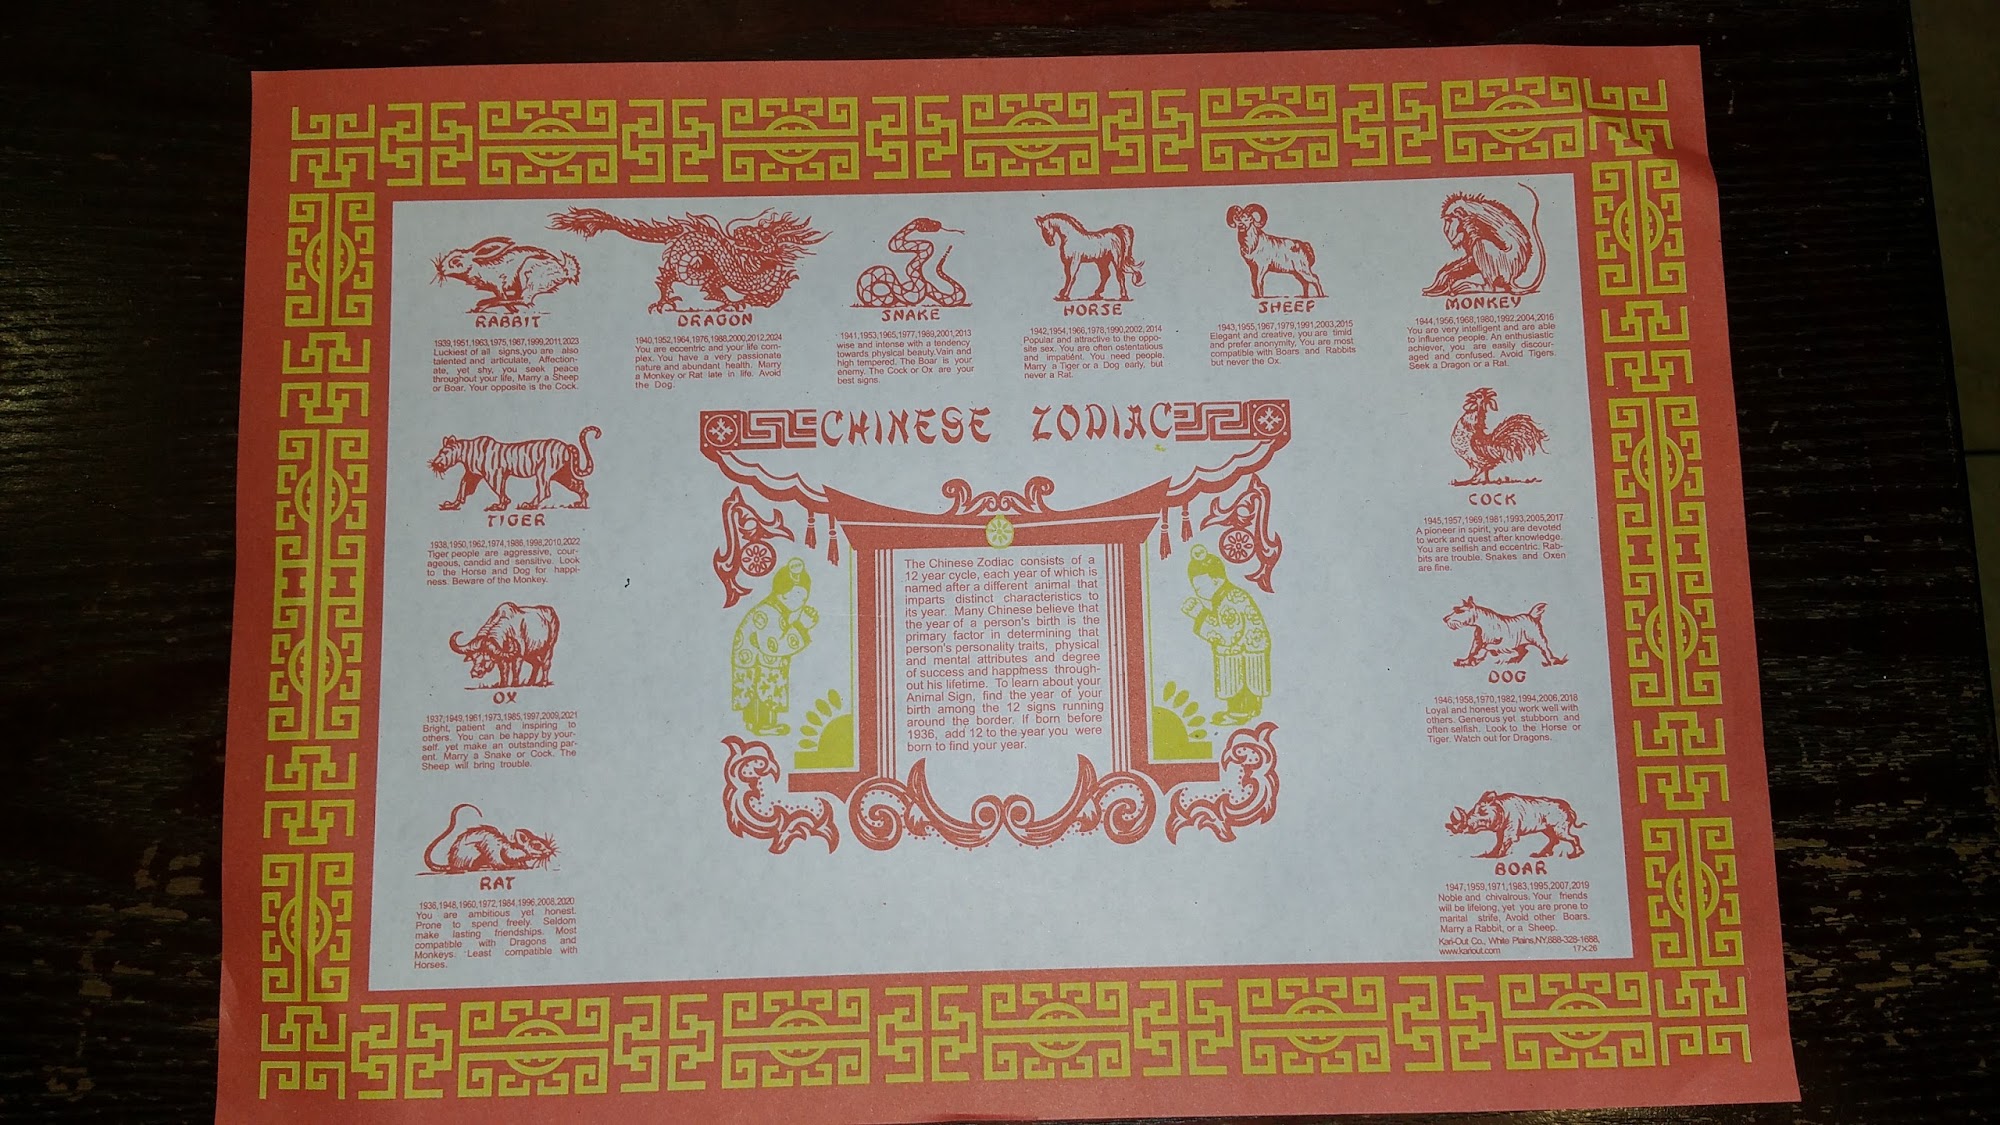 RABBIT
1939,1951,1963,1975,1967,1999,2011,2023
Luckiest of all signs,you are also
talented and articulate, Affection-
ate, yet shy, you seek peace
throughout your life, Marry a Sheep
or Boar. Your opposite is the Cock.
DRAGON
1940,1952,1964,1976,1988,2000,2012,2024
You are eccentric and your life com-
plex. You have a very passionate
nature and abundant health. Marry
a Monkey or Rat late in life. Avoid
the Dog.
SNAKE
1941,1953,1965,1977,1989,2001,2013
wise and intense with a tendency
towards physical beauty.Vain and
high tempered. The Boar is your
enemy. The Cock or Ox are your
best signs.
HORSE
1942,1954,1966,1978,1990,2002,2014
Popular and attractive to the oppo-
site sex. You are often ostentatious
and impatient. You need people.
Marry a Tiger or a Dog early, but
never a Rat.
SHEEP
1943,1955,1967,1979,1991,2003,2015
Elegant and creative, you are timid
and prefer anonymity, You are most
compatible with Boars and Rabbits
but never the Ox.
MONKEY
1944,1956,1968,1980,1992,2004,2016
You are very intelligent and are able
to influence people. An enthusiastic
achiever, you are easily discour-
aged and confused. Avoid Tigers
Seek a Dragon or a Rat.
CHINESE ZODIAC
TIGER
1938,1950,1962,1974,1986,1998,2010,2022
Tiger people are aggressive, cour-
ageous, candid and sensitive. Look
to the Horse and Dog for happi-
ness. Beware of the Monkey.
COCK
1945,1957,1969,1981,1993,2005,2017
A pioneer in spirit, you are devoted
to work and quest after knowledge.
You are selfish and eccentric. Rab-
bits are trouble. Snakes and Oxen
are fine.
The Chinese Zodiac consists of a
12 year cycle, each year of which is
named after a different animal that
imparts distinct characteristics to
its year. Many Chinese believe that
the year of a person's birth is the
primary factor in determining that
person's personality traits, physical
and mental attributes and degree
of success and happiness through-
out his lifetime. To learn about your
Animal Sign, find the year of your
birth among the 12 signs running
around the border. If born before
1936, add 12 to the year you were
born to find your year.
OX
1937,1949,1961,1973,1985,1997,2009,2021
Bright, patient and inspiring to
others. You can be happy by your-
self. yet make an outstanding par-
ent. Marry a Snake or Cock. The
Sheep will bring trouble.
DOG
1946,1958,1970,1982,1994,2006,2018
Loyal and honest you work well with
others. Generous yet stubborn and
often selfish. Look to the Horse or
Tiger. Watch out for Dragons.
RAT
1936,1948,1960,1972,1984,1996,2008,2020
You are ambitious yet honest.
Prone to spend freely. Seldom
make lasting friendships. Most
compatible with Dragons and
Monkeys. Least compatible with
Horses.
BOAR
1947,1959,1971,1983,1995,2007,2019
Noble and chivalrous. Your friends
will be lifelong, yet you are prone to
marital strife. Avoid other Boars.
Marry a Rabbit, or a Sheep.
Kari-Out Co., White Plains,NY,888-328-1688,
www.kariout.com 17×26